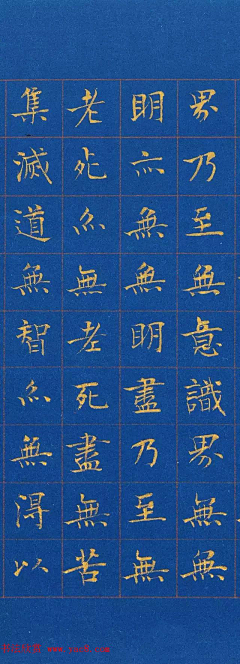 界乃至無意識界無無
明亦無無明盡乃至無
老死亦無老死盡無苦
集滅道無智亦無得以